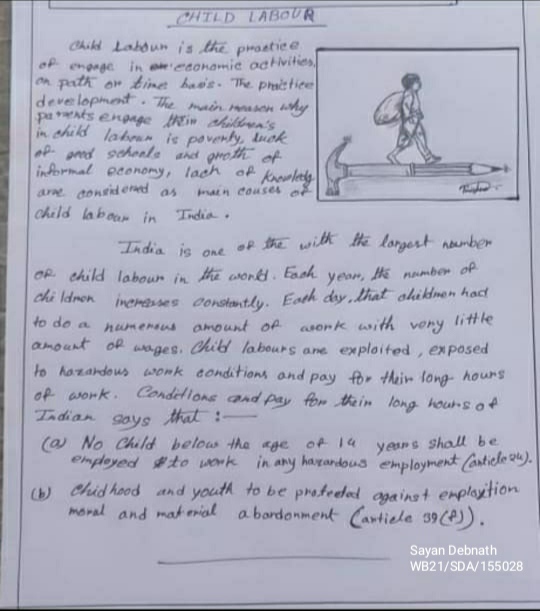 CHILD LABOUR
Child Labour is the practice
of engage in economic activities,
on path or time basis. The practice
development. The main reason why
parents engage their children's
in child labour is poverty, luck
of good schools and groth of
informal economy, lack of Knowledg
are considered as main causes of
child labour in India.
India is one of the with the largest number
of child labour in the world. Each year, the number of
children increases constantly. Each day, that children had
to do a numerous amount of work with very little
amount of wages. Child labours are exploited, exposed
to hazardous work conditions and pay for their long hours
of work. Conditions and pay for their long hours of
Indian says that :—
(a) No Child below the age of 14 years shall be
employed to work in any hazardous employment (article 24).
(b) Chidhood and youth to be protected against
moral and material abordonment (article 39(f)).
Sayan Debnath
WB21/SDA/155028